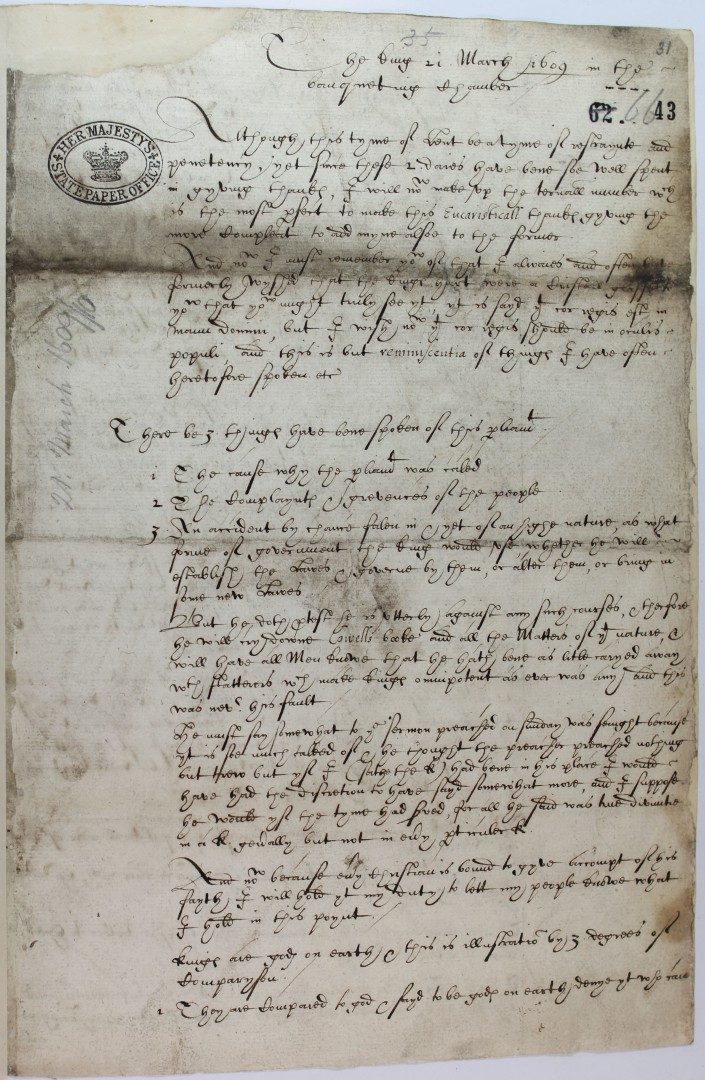 35
31
The king 21. March 1609 in the
banqueting Chamber
62. 66 43
HER MAJESTY'S STATE PAPER OFFICE
Although this tyme of Lent be a tyme of restraynte and
penetency, yet since these 2. daies have bene soe well spent
in gyving thankes, I will now make up the ternall number wch
is the most pfect to make this Eucaristicall thankes gyving the
more Compleat to add myne alsoe to the former
And now I must remember yow of that I alwaies and often
formerly wysshed that the kings hart were a Cristall glasse
yt yow might truly see yt, yt is sayd yt cor regis est in
manu domini, but I wish now yt cor regis should be in oculis
populi, and this is but reminiscentia of things I have often
heretofore spoken etc
There be 3 things have bene spoken of this pliamt
1 The cause why the pliamt was caled
2 The Complaynts & grevences of the people
3 An accident by chance falen in & yet of an highe nature, as what
forme of government the king would use whether he will
establish the Lawes & governe by them, or alter them, or bring in
some new Lawes
But he doth ptest he is utterly against any such courses, & therfore
he will cry downe Cowells booke and all the Matters of yt nature, &
will have all Men knowe that he hath bene as litle caryed away
wth flatterers wch make kings omnipotent as ever was any, and this
was nevr his fault
He must say somewhat to ye Sermon preached on sunday was senight because
yt is soe much talked of, & he thought the preacher preached nothing
but trew but yf I (saith the K) had bene in his place I would
have had the discretion to have sayd somewhat more, and I suppose
he would yf the tyme had svved, for all he said was true divinite
in a K. genally but not in evy pticuler K.
And now because evy Christian is bound to gyve accompt of his
fayth, I will hold yt my duty to lett my people knowe what
I hold in this poynt
Kings are gods on earth, & this is illustratid by 3 degrees of
Comparyson.
1 They are Compared to god & sayd to be gods on earth, denye yt who can
21. March 1609/10